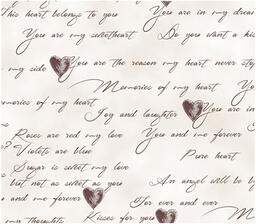 This heart belongs to you
You are in my dream
You are my sweetheart
Do you want a ki
my side
You are the reason my heart never sto
Memories of my heart
You
memories of my heart
Joy and laughter
You are in
Roses are red my love
You and me forever
? Violets are blue
Pure heart
Sugar is sweet my love
but not as sweet as you
An angel will be by
and me forever
For ever and ever
my thoughts
Kisses for you
M